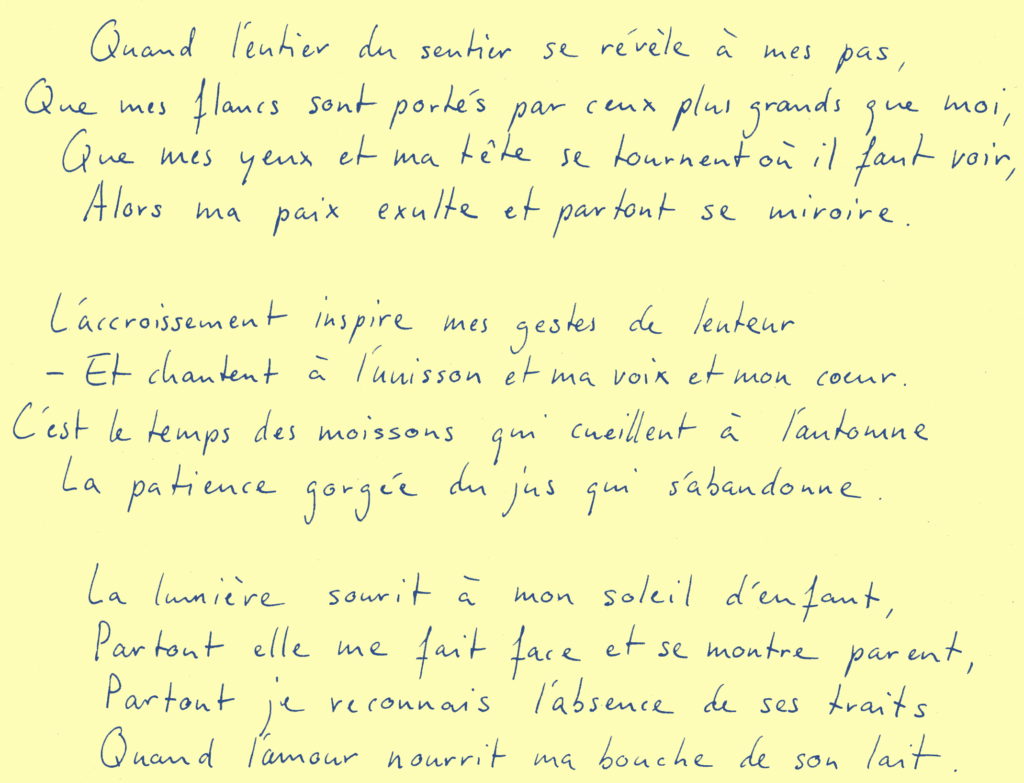 Quand l'entier du sentier se révèle à mes pas,
Que mes flancs sont portés par ceux plus grands que moi,
Que mes yeux et ma tête se tournent où il faut voir,
Alors ma paix exulte et partout se miroire.
L'accroissement inspire mes gestes de lenteur
- Et chantent à l'unisson et ma voix et mon coeur.
C'est le temps des moissons qui cueillent à l'automne
La patience gorgée du jus qui s'abandonne.
La lumière sourit à mon soleil d'enfant,
Partout elle me fait face et se montre parent,
Partout je reconnais l'absence de ses traits
Quand l'amour nourrit ma bouche de son lait.